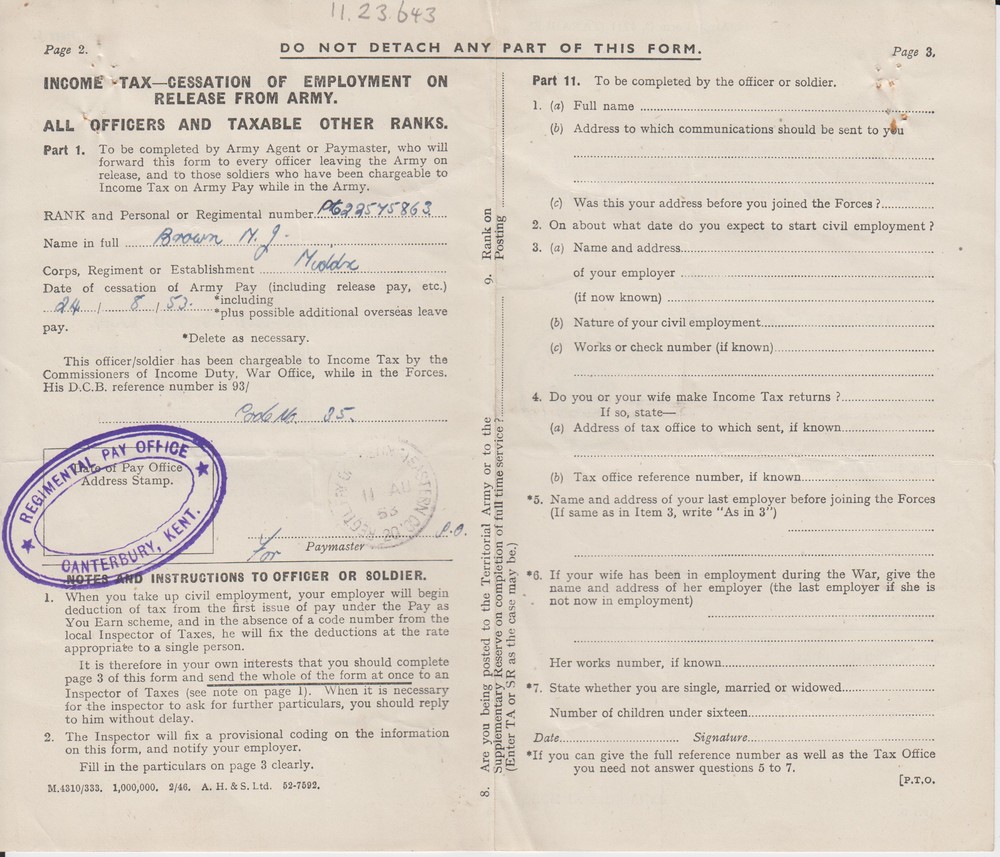 11.23.643
Page 2.
DO NOT DETACH ANY PART OF THIS FORM.
Page 3.
INCOME TAX—CESSATION OF EMPLOYMENT ON
RELEASE FROM ARMY.
ALL OFFICERS AND TAXABLE OTHER RANKS.
Part 1. To be completed by Army Agent or Paymaster, who will
forward this form to every officer leaving the Army on
release, and to those soldiers who have been chargeable to
Income Tax on Army Pay while in the Army.
RANK and Personal or Regimental number 22545863
Name in full Brown N. J.
Corps, Regiment or Establishment Middx
Date of cessation of Army Pay (including release pay, etc.)
24 / 8 / 53. *including
*plus possible additional overseas leave
pay.
*Delete as necessary.
This officer/soldier has been chargeable to Income Tax by the
Commissioners of Income Duty, War Office, while in the Forces.
His D.C.B. reference number is 93/
Code No. 25.
REGIMENTAL PAY OFFICE
CANTERBURY, KENT.
Date of Pay Office
Address Stamp.
11 AU
53
For Paymaster P.O.
NOTES AND INSTRUCTIONS TO OFFICER OR SOLDIER.
1. When you take up civil employment, your employer will begin
deduction of tax from the first issue of pay under the Pay as
You Earn scheme, and in the absence of a code number from the
local Inspector of Taxes, he will fix the deductions at the rate
appropriate to a single person.
It is therefore in your own interests that you should complete
page 3 of this form and send the whole of the form at once to an
Inspector of Taxes (see note on page 1). When it is necessary
for the inspector to ask for further particulars, you should reply
to him without delay.
2. The Inspector will fix a provisional coding on the information
on this form, and notify your employer.
Fill in the particulars on page 3 clearly.
M.4310/333. 1,000,000. 2/46. A. H. & S. Ltd. 52-7592.
8. Are you being posted to the Territorial Army or to the
Supplementary Reserve on completion of full time service ?
(Enter TA or SR as the case may be.)
9. Rank on
Posting
Part 11. To be completed by the officer or soldier.
1. (a) Full name
(b) Address to which communications should be sent to you
(c) Was this your address before you joined the Forces ?
2. On about what date do you expect to start civil employment ?
3. (a) Name and address
of your employer
(if now known)
(b) Nature of your civil employment
(c) Works or check number (if known)
4. Do you or your wife make Income Tax returns ?
If so, state—
(a) Address of tax office to which sent, if known
(b) Tax office reference number, if known
*5. Name and address of your last employer before joining the Forces
(If same as in Item 3, write "As in 3")
*6. If your wife has been in employment during the War, give the
name and address of her employer (the last employer if she is
not now in employment)
Her works number, if known
*7. State whether you are single, married or widowed
Number of children under sixteen
Date Signature
*If you can give the full reference number as well as the Tax Office
you need not answer questions 5 to 7.
[P.T.O.